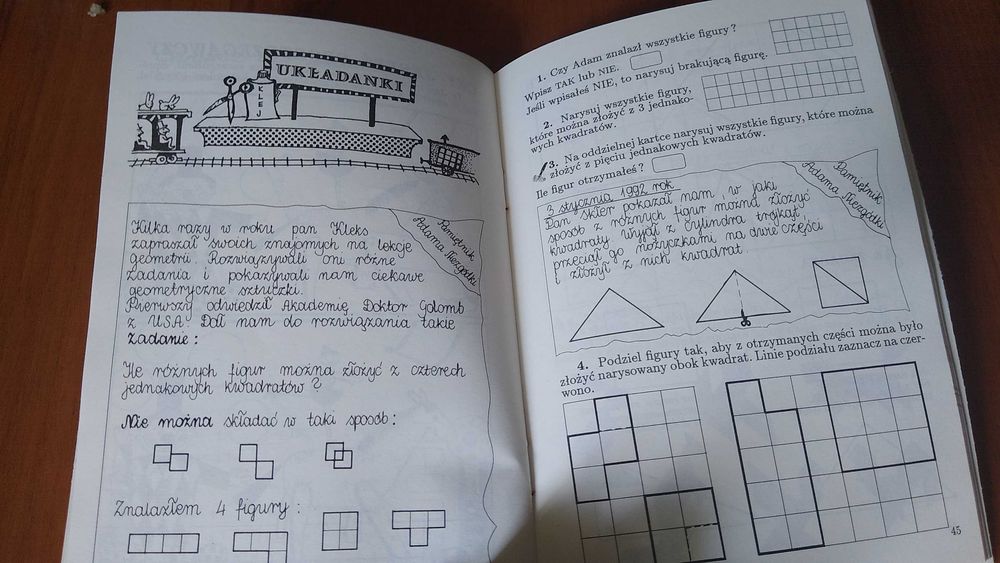 UKŁADANKI
KLEJ
Pamiętnik
Adama Niezgódki
Kilka razy w roku pan Kleks
zapraszał swoich znajomych na lekcje
geometrii. Rozwiązywali oni różne
zadania i pokazywali nam ciekawe
geometryczne sztuczki.
Pierwszy odwiedził Akademię Doktor Golomb
z USA. Dał nam do rozwiązania takie
zadanie:
Ile różnych figur można złożyć z czterech
jednakowych kwadratów?
Nie można składać w taki sposób:
Znalazłem 4 figury:
1. Czy Adam znalazł wszystkie figury?
Wpisz TAK lub NIE.
Jeśli wpisałeś NIE, to narysuj brakującą figurę.
2. Narysuj wszystkie figury,
które można złożyć z 3 jednako-
wych kwadratów.
3. Na oddzielnej kartce narysuj wszystkie figury, które można
złożyć z pięciu jednakowych kwadratów.
Ile figur otrzymałeś?
Pamiętnik
Adama Niezgódki
3 stycznia 1992 rok
Pan Skler pokazał nam, w jaki
sposób z różnych figur można złożyć
kwadraty. Wyjął z cylindra trójkąt,
przeciął go nożyczkami na dwie części
i złożył z nich kwadrat.
4. Podziel figury tak, aby z otrzymanych części można było
złożyć narysowany obok kwadrat. Linie podziału zaznacz na czer-
wono.
45